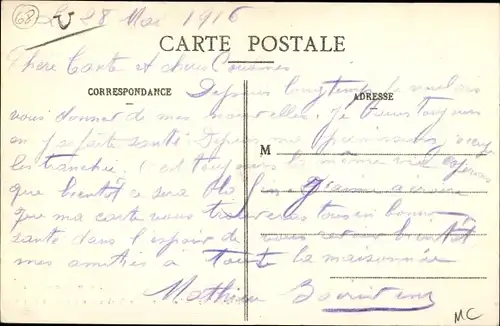 68
le 28 Mai 1916
CARTE POSTALE
Chère Tante et chères Cousines
CORRESPONDANCE
ADRESSE
Depuis longtemps je voulais
vous donner de mes nouvelles. Je suis toujours
en parfaite santé. Depuis ma
M
les tranchées c'est toujours la même vie espérons
que bientôt ce sera la fin J'aime à croire
que ma carte vous trouvera tous en bonne
santé dans l'espoir de vous revoir bientôt
mes amitiés à toute la maisonnée
Mathieu
MC